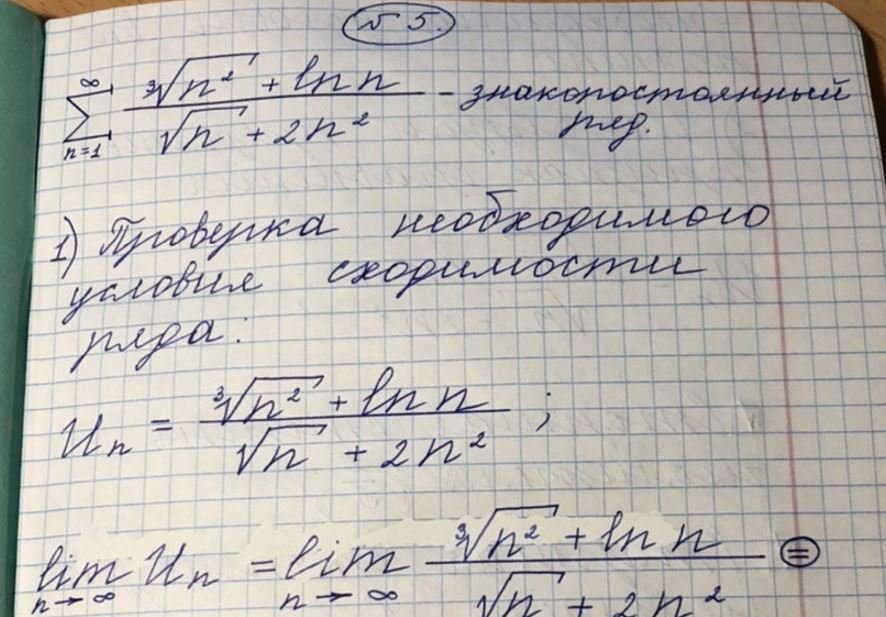 № 5.
∑_{n=1}^{∞} (∛(n²) + ln n)/(√n + 2n²) - знакопостоянный
ряд.
1) Проверка необходимого
условия сходимости
ряда:
Uₙ = (∛(n²) + ln n)/(√n + 2n²) ;
lim_{n→∞} Uₙ = lim_{n→∞} (∛(n²) + ln n)/(√n + 2n²) =